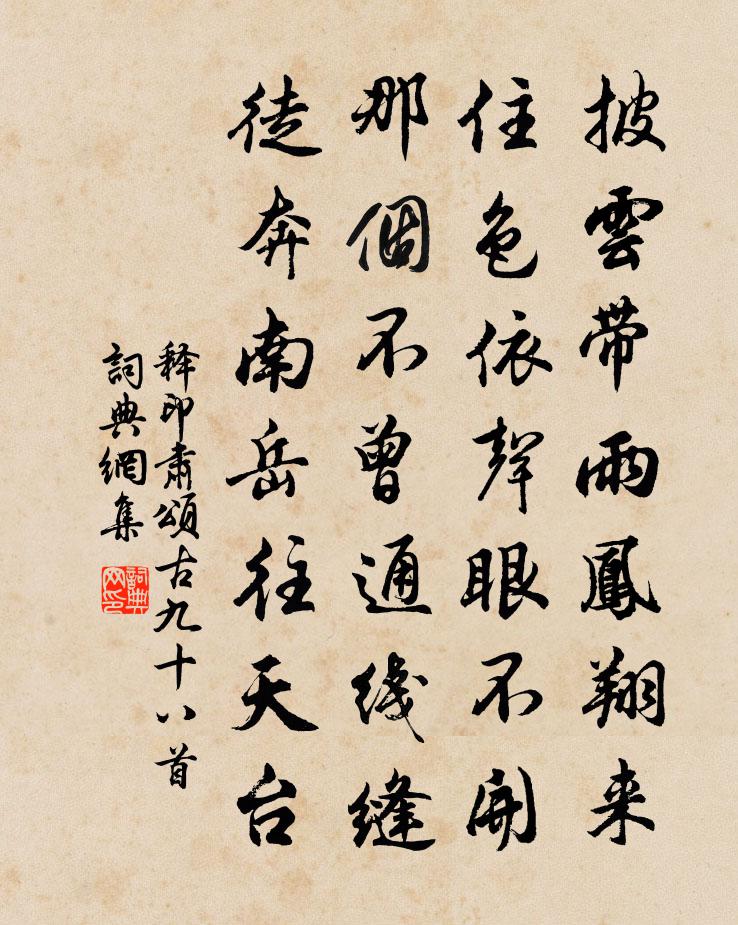 披雲带雨鳳翔来
住色依聲眼不開
那個不曾通綫縫
徒奔南岳往天台
释印肅頌古九十八首
詞典網集
詞典网印